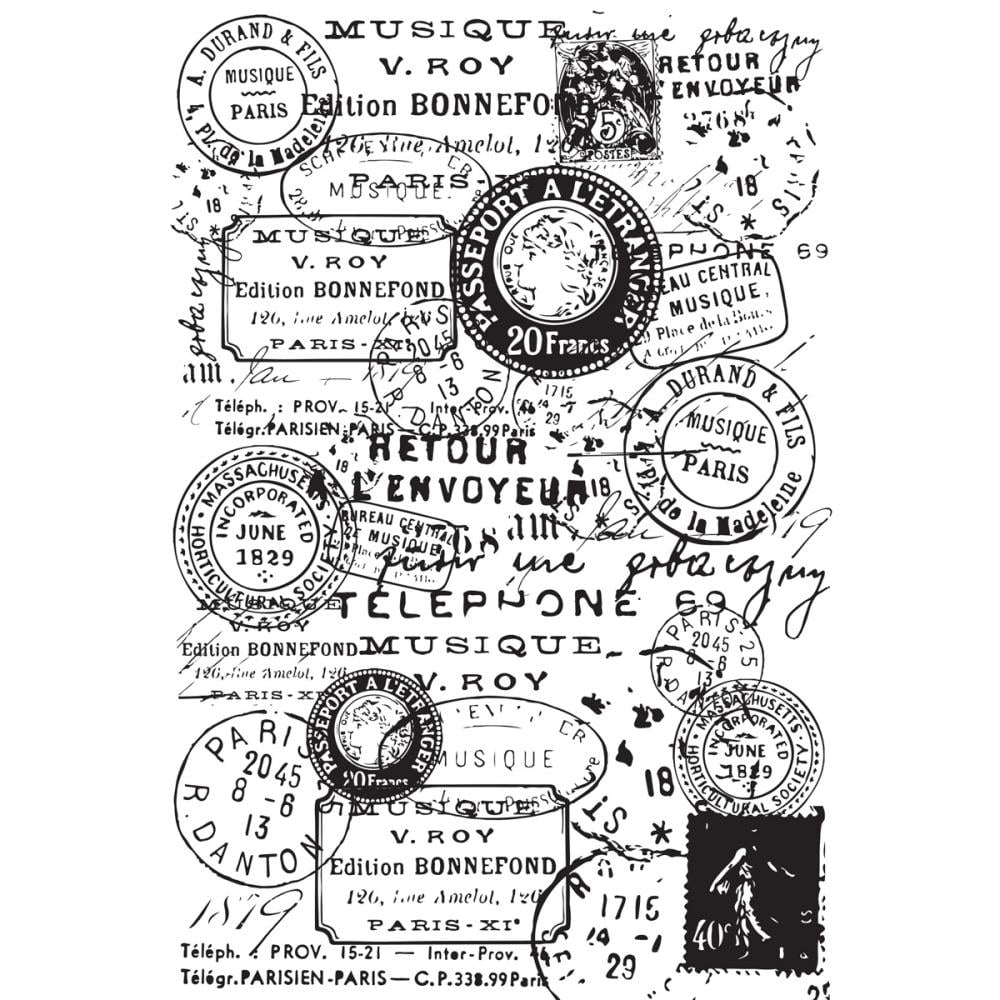 MUSIQUE
V. ROY
Edition BONNEFOND
126, Rue Amelot, 126
PARIS - XI
A. DURAND & FILS
4, Pl. de la Madeleine
MUSIQUE
PARIS
5c
POSTES
RETOUR
L'ENVOYEUR
2768
18
MUSIQUE
18
IS *
PASSEPORT A L'ETRANGER
REPUBLIQUE FRANCAISE
20 Francs
MUSIQUE
V. ROY
Edition BONNEFOND
126, Rue Amelot, 126
PARIS - XIe
TELEPHONE 69
BUREAU CENTRAL
MUSIQUE,
Place de la
am. Jan - 1879
PARIS
2045
8 -6
13
R. DANTON
1715
24 -7
29
Téléph. : PROV. 15-21 — Inter-Prov. 46
Télégr. PARISIEN-PARIS — C.P. 338.99 Paris
A. DURAND & FILS
4, Pl. de la Madeleine
MUSIQUE
PARIS
RETOUR
L'ENVOYEUR
18
18
MASSACHUSETTS
HORTICULTURAL SOCIETY
INCORPORATED
JUNE
1829
BUREAU CENTRAL
DE MUSIQUE
Place
68
am. Jan 19
TELEPHONE 69
MUSIQUE
V. ROY
Edition BONNEFOND
126, Rue Amelot, 126
PARIS - XI
MUSIQUE
V. ROY
PARIS-25
2045
8 -6
13
PASSEPORT A L'ETRANGER
20 Francs
MUSIQUE
18
IS *
MASSACHUSETTS
HORTICULTURAL SOCIETY
INCORPORATED
JUNE
1829
PARIS
2045
8 -6
13
R. DANTON
MUSIQUE
V. ROY
Edition BONNEFOND
126, Rue Amelot, 126
PARIS - XIe
1879
1715
24 -7
29
40c
Téléph. : PROV. 15-21 — Inter-Prov. 46
Télégr. PARISIEN-PARIS — C.P. 338.99 Paris